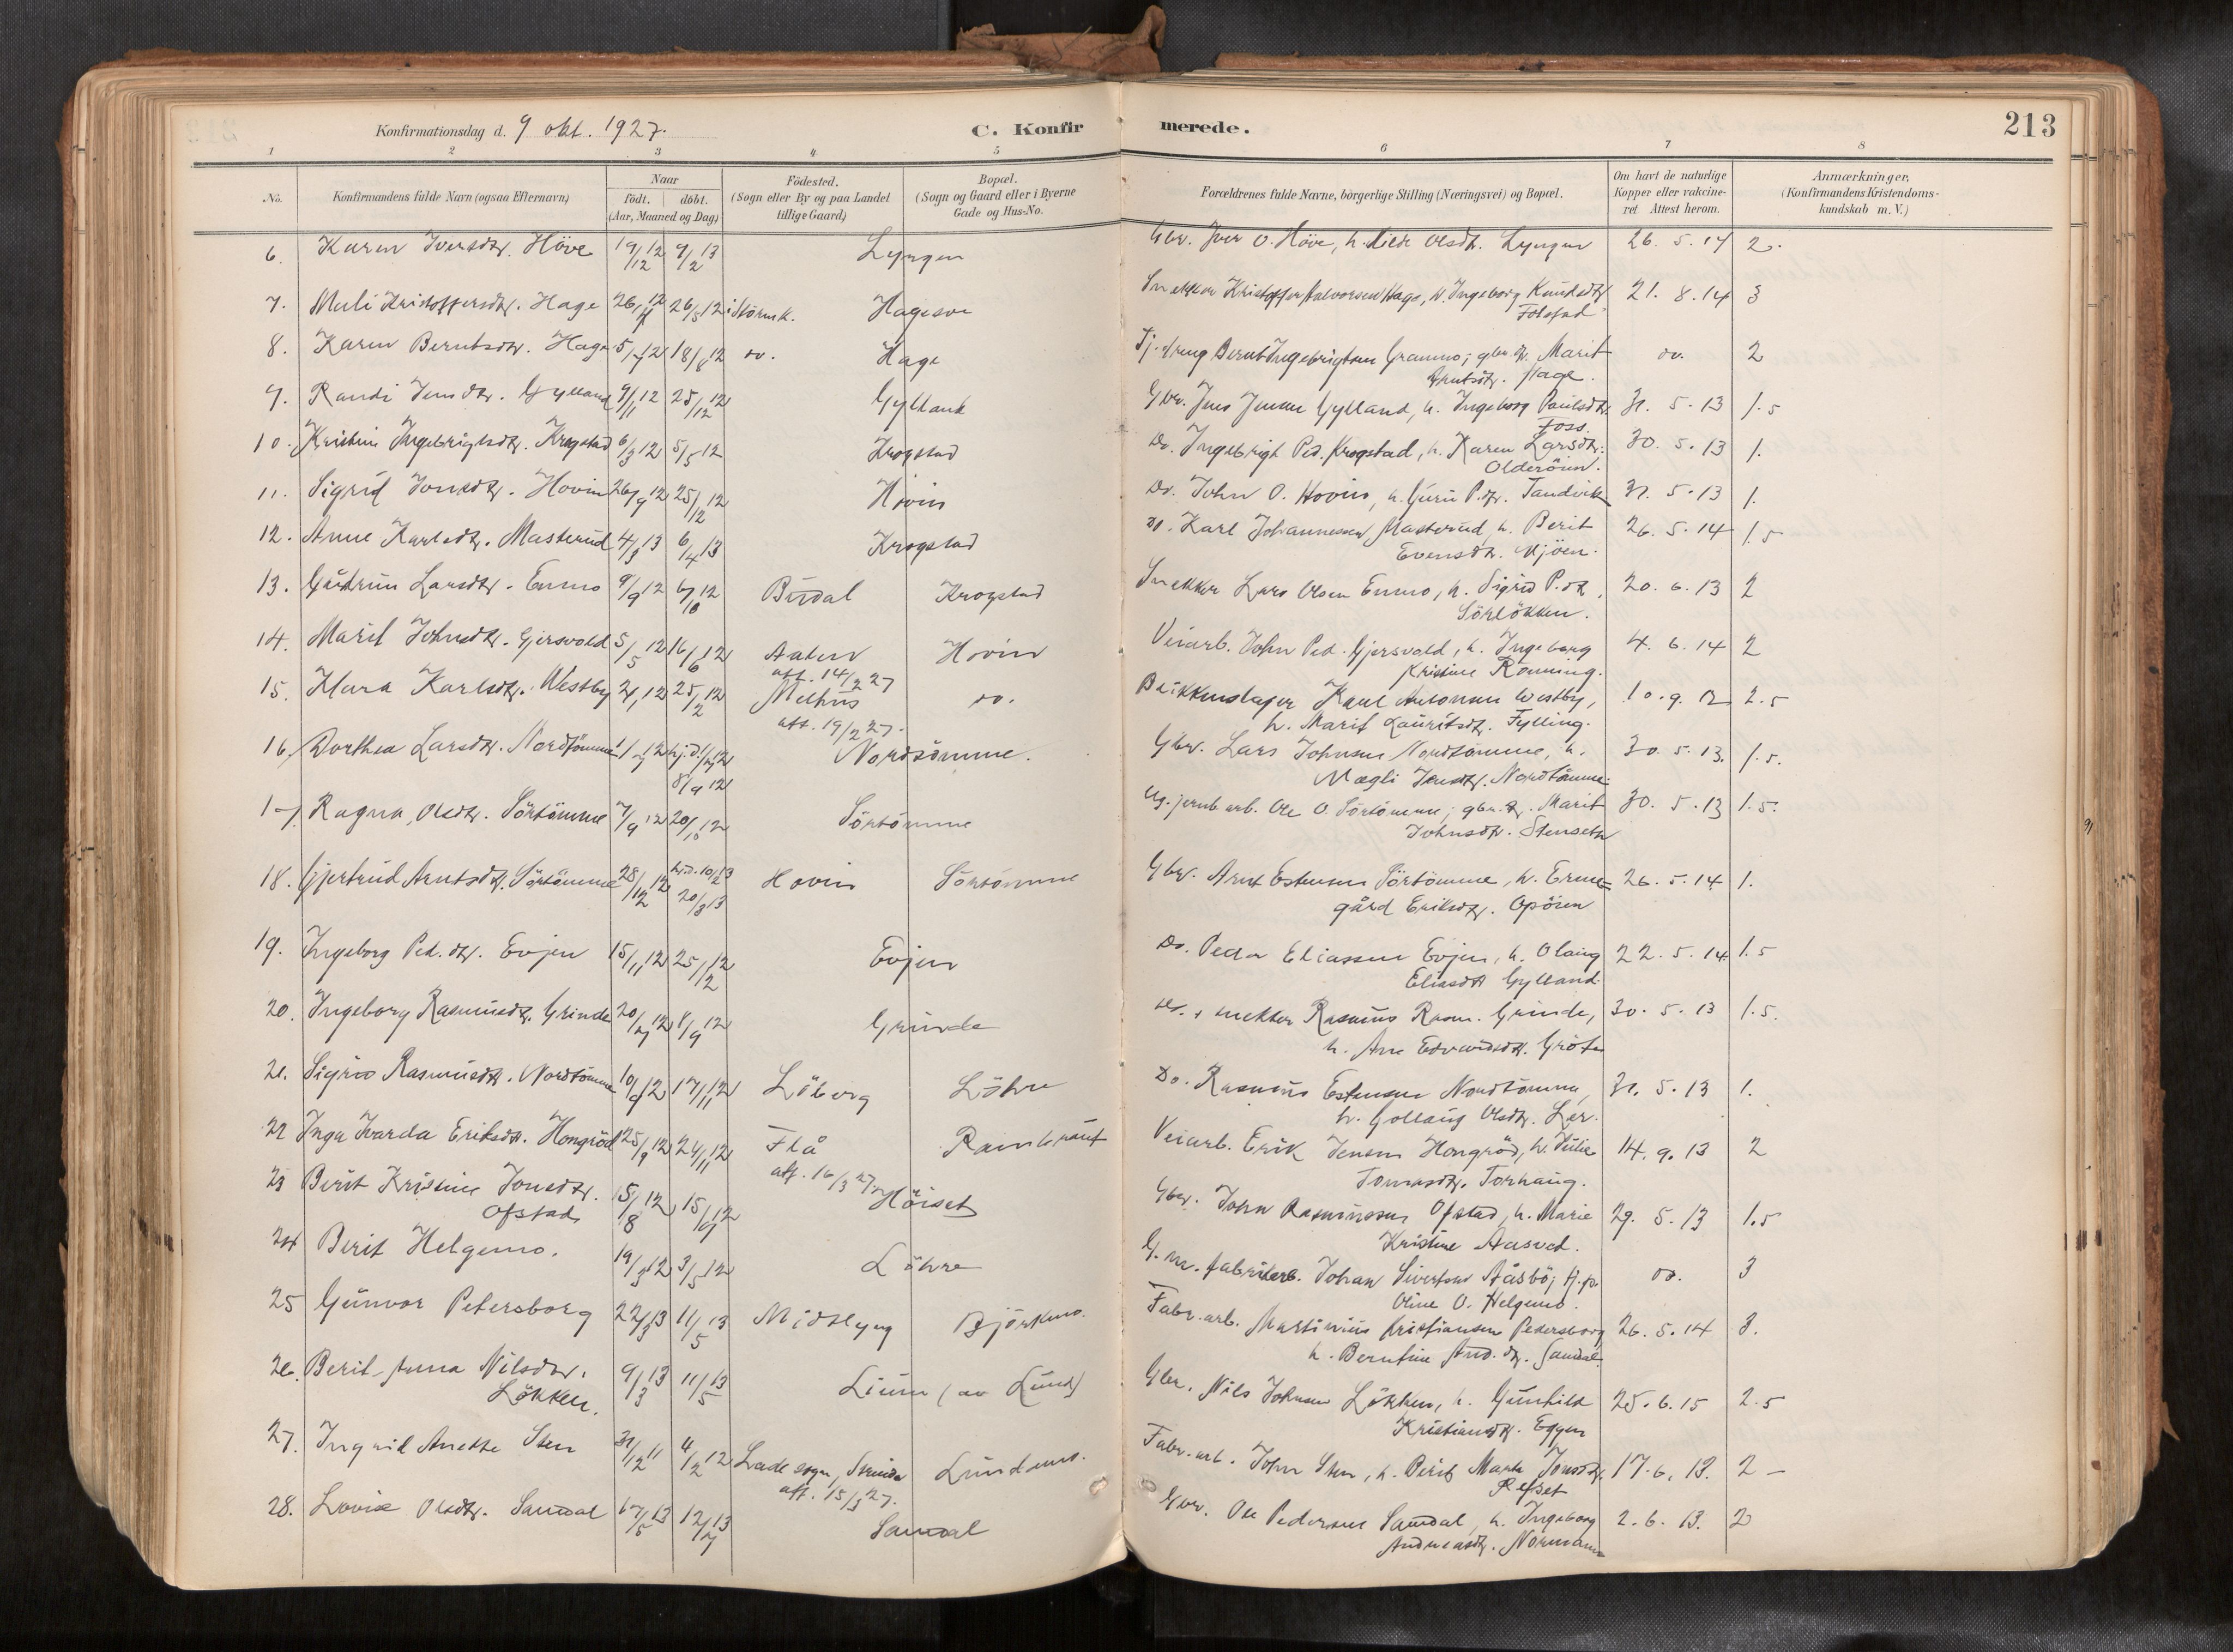 Konfirmationsdag d. 9 okt. 1927.
C. Konfirmerede.
213
1 2 3 4 5 6 7 8
No. Konfirmandens fulde Navn (ogsaa Efternavn) Naar født. døbt. (Aar, Maaned og Dag) Fødested. (Sogn eller By og paa Landet tillige Gaard) Bopæl. (Sogn og Gaard eller i Byerne Gade og Hus-No. Forældrenes fulde Navne, borgerlige Stilling (Næringsvei) og Bopæl. Om havt de naturlige Kopper eller vakcineret. Attest herom. Anmærkninger, (Konfirmandens Kristendomskundskab m. V.)
6. Karen Iversdtr. Höve 19/12 12 9/2 13 Lyngen Gbr. Iver O. Höve, h. Olsdtr. Lyngen 26. 5. 14 2.
7. Meli Kristoffersdtr. Hage 26/5 12 i Störenk. Hagesve Snekker Kristoffer Halvorsen Hage, h. Ingeborg Knudsdtr 21. 8. 14 3
Folstad
8. Karen Berntsdtr. Hage 5/7 12 18/8 12 do. Hage Tj.dreng Bernt Ingebrigtsen Gramno; gbr. d. Marit do. 2
Arntsdtr. Hage.
9. Randi Jensdtr. Gylland 9/11 12 25/12 12 Gylland Gbr. Jens Jensen Gylland, h. Ingeborg Paulsdtr. 31. 5. 13 1.5
Foss.
10. Kristine Ingebrigtsdtr. Krogstad 6/3 12 5/5 12 Krogstad Do. Ingebrigt Ped. Krogstad, h. Karen Larsdtr. 30. 5. 13 1.
Olderöien.
11. Sigrid Jonsdtr. Hovin 26/9 12 25/12 12 Hovin Do. John O. Hovin, h. Guru P.dtr. Tandvik 31. 5. 13 1.
12. Anne Karlsdtr. Masterud 4/3 13 6/4 13 Krogstad Do. Karl Johannessen Masterud, h. Berit 26. 5. 14 1.5
Evensdtr. Mjöen.
13. Gudrun Larsdtr. Enmo 9/9 12 6/10 12 Budal Krogstad Snekker Lars Olsen Enmo, h. Sigrid P.dtr. 20. 6. 13 2
Sörlökken.
14. Marit Johnsdtr. Gjersvold 5/5 12 16/6 12 Aalen Hovin Veiarb. John Ped. Gjersvold, h. Ingeborg 4. 6. 14 2
att. 14/2 27 Kristine Rönning.
15. Klara Karlsdtr. Westby 2/1 12 25/2 12 Melhus do. Blikkenslager Karl Antonsen Westby, 10. 9. 12 2.5
att. 19/2 27. h. Marit Lauritsdtr. Fylling.
16. Dorthea Larsdtr. Nordtömme 1/7 12 hj.d. 1/7 12 Nordtömme. Gbr. Lars Johnsen Nordtömme, h. 30. 5. 13. 1.5.
8/9 12 Magli Jensdtr. Nordtömme.
17. Ragna Olsdtr. Sörtömme 7/9 12 20/10 12 Sörtömme Ug. jernb arb. Ole O. Sörtömme; gbr. d. Marit 30. 5. 13 1.5.
Johnsdtr. Stenseth
18. Gjertrud Arntsdtr. Sörtömme 28/12 12 hj.d. 10/2 13 Hovin Sörtömme Gbr. Arnt Estensen Sörtömme, h. Erme- 26. 5. 14 1.
20/3 13 gård Eriksdtr. Opöien
19. Ingeborg Ped.dtr. Evjen 15/11 12 25/12 12 Evjen Do. Peder Eliassen Evjen, h. Olaug 22. 5. 14 1.5
Eliasdtr Gylland.
20. Ingeborg Rasmusdtr. Grinde 20/7 12 8/9 12 Grinde Do. & snekker Rasmus Rasm. Grinde, 30. 5. 13 1.5.
h. Ane Edvardsdtr. Gröten
21. Sigrid Rasmusdtr. Nordtömme 10/9 12 17/11 12 Löberg Löhre Do. Rasmus Estensen Nordtömme, 31. 5. 13 1.
h. Gollaug Olsdtr. Ler.
22 Inga Ivarda Eriksdtr. Hongröd 25/9 12 24/11 12 Flå Veiarb. Erik Jensen Hongröd, h. Julie 14. 9. 13 2
att. 16/3 27 Tomasdtr. Torhaug.
23 Berit Kristine Jonsdtr. 15/8 12 15/9 12 Höiset Gbr. John Rasmussen Ofstad, h. Marie 29. 5. 13 1.5
Ofstad Kristine Aasved.
24 Berit Helgemo. 19/3 12 3/5 12 Löhre G. m. fabrikarb. Johan Sivertsen Aasbö; tj.p. do. 3
Oline O. Helgemo.
25 Gunvor Petersborg 22/3 13 11/5 13 Midtlyng Björkmo. Fabr.arb. Martinius Kristiansen Pedersborg 26. 5. 14 3.
h. Berntine And.dtr. Samdal.
26. Berit Anna Nilsdtr. 9/3 13 11/5 13 Lium (av Lund) Gbr. Nils Johnsen Lökken, h. Gunhild 25. 6. 15 2.5
Lökken. Kristiansdtr. Eggen
27. Ingrid Anette Sten 31/12 11 4/2 12 Lade sogn, Strinda Lundamo. Fabr. arb. John Sten, h. Berit Marta Jonsdtr. 17. 6. 13. 2 –
att. 15/3 27. Refset
28. Lovise Olsdtr. Samdal 17/5 13 12/7 13 Samdal Gbr. Ole Pedersen Samdal, h. Ingeborg 2. 6. 13. 2
Andreasdtr. Normann